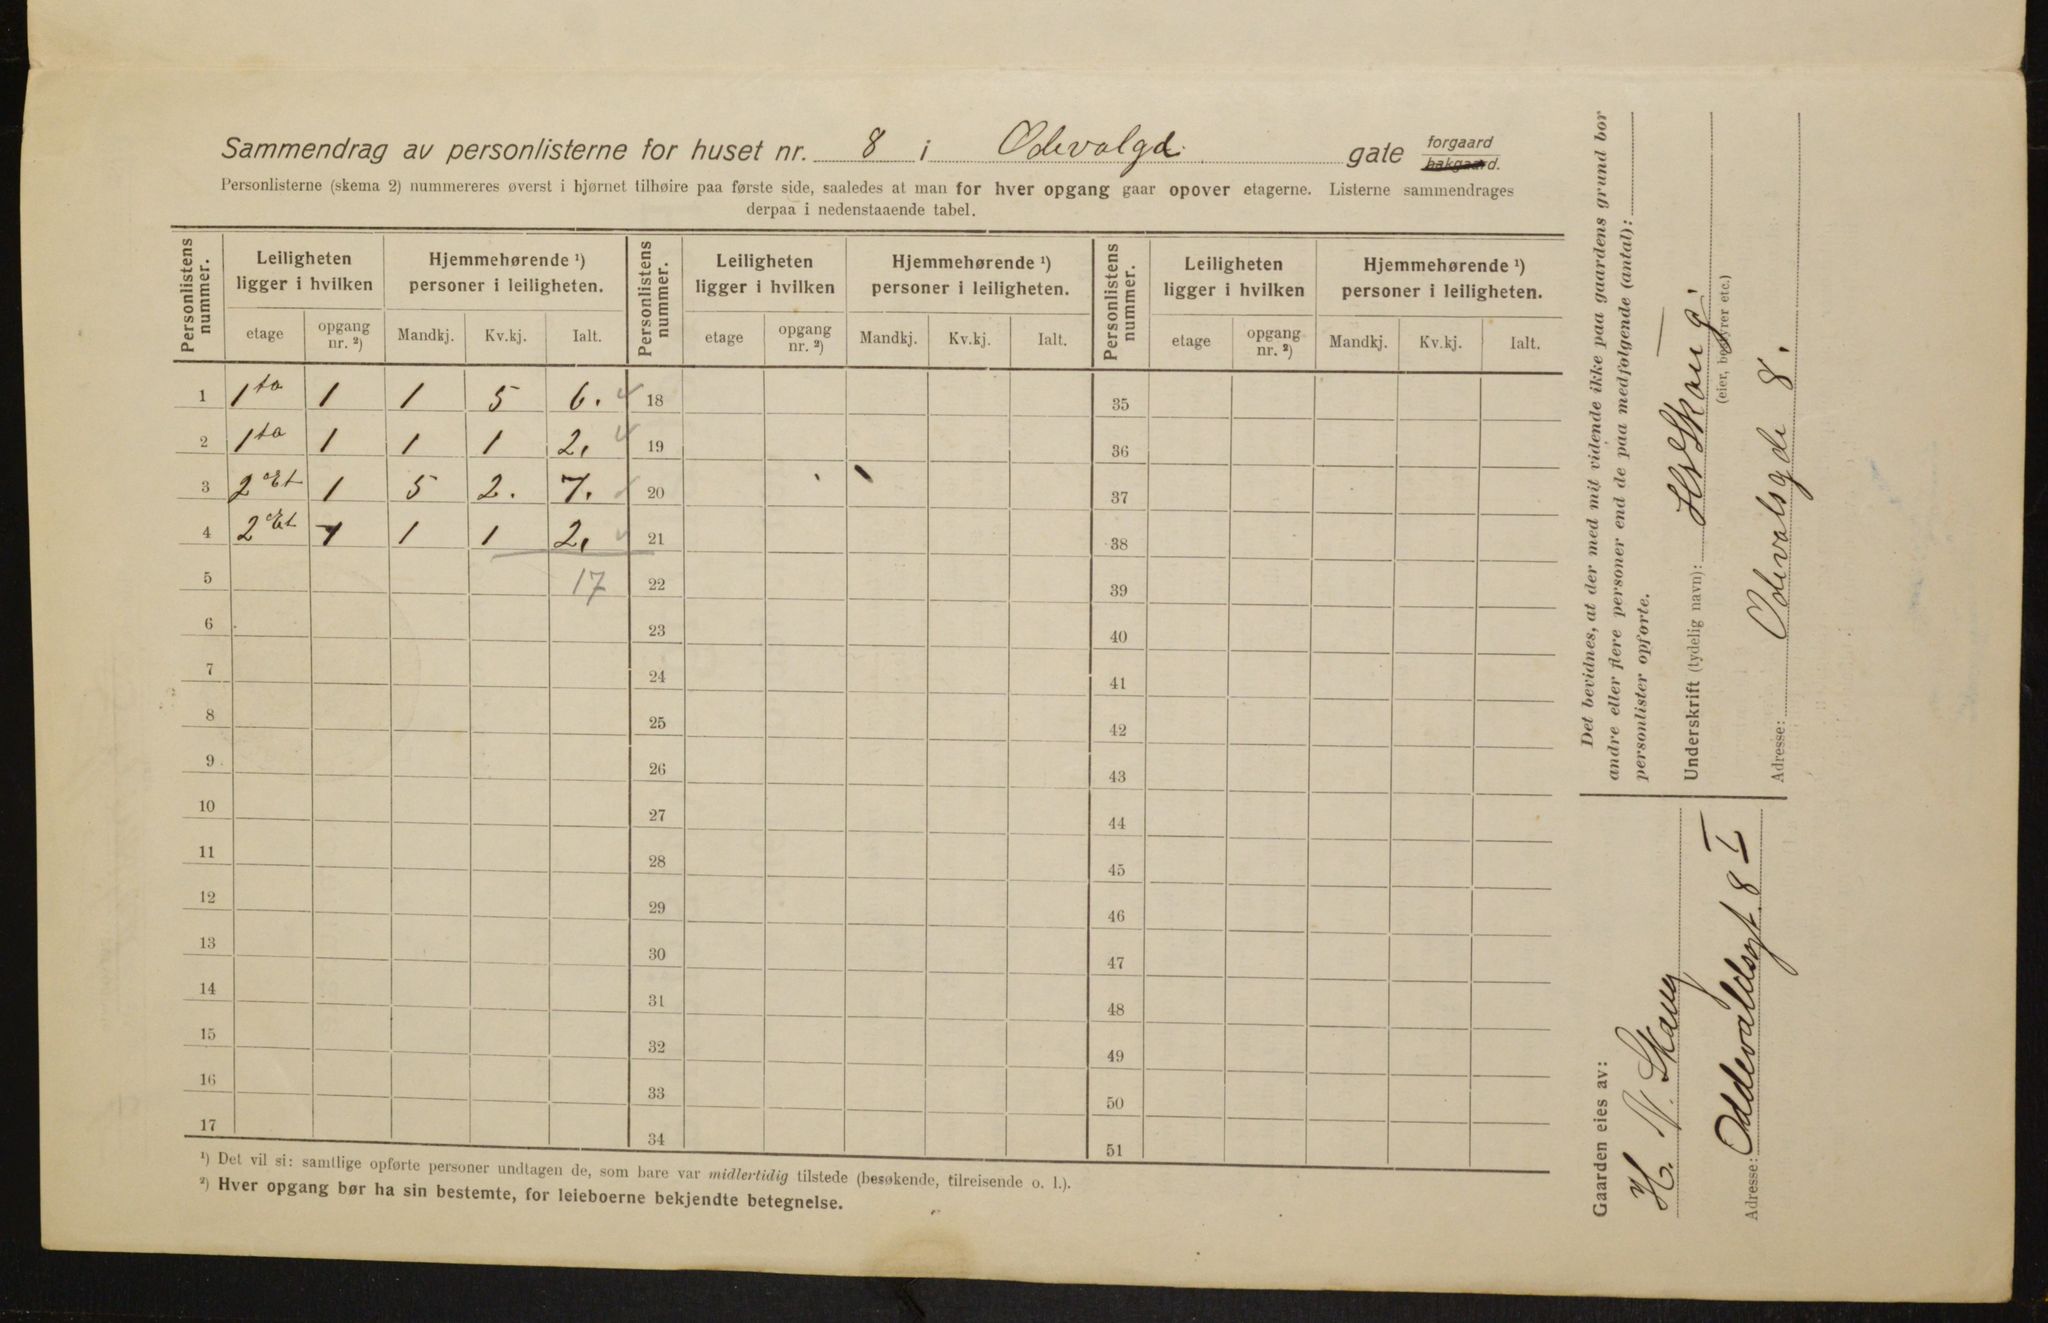 Sammendrag av personlisterne for huset nr. 8 i Odevalgd. gate forgaard bakgaard.
Personlisterne (skema 2) nummereres øverst i hjørnet tilhøire paa første side, saaledes at man for hver opgang gaar opover etagerne. Listerne sammendrages
derpaa i nedenstaaende tabel.
Personlistens nummer. Leiligheten ligger i hvilken Hjemmehørende ¹) personer i leiligheten. Personlistens nummer. Leiligheten ligger i hvilken Hjemmehørende ¹) personer i leiligheten. Personlistens nummer. Leiligheten ligger i hvilken Hjemmehørende ¹) personer i leiligheten.
etage opgang nr. ²) Mandkj. Kv.kj. Ialt. etage opgang nr. ²) Mandkj. Kv.kj. Ialt. etage opgang nr. ²) Mandkj. Kv.kj. Ialt.
1 1ta 1 1 5 6. 18 35
2 1ta 1 1 1 2, 19 36
3 2 Et 1 5 2. 7. 20 37
4 2 Et 1 1 1 2, 21 38
5 17 22 39
6 23 40
7 24 41
8 25 42
9 26 43
10 27 44
11 28 45
12 29 46
13 30 47
14 31 48
15 32 49
16 33 50
17 34 51
¹) Det vil si: samtlige opførte personer undtagen de, som bare var midlertidig tilstede (besøkende, tilreisende o. l.).
²) Hver opgang bør ha sin bestemte, for leieboerne bekjendte betegnelse.
Det bevidnes, at der med mit vidende ikke paa gaardens grund bor
andre eller flere personer end de paa medfølgende (antal):
personlister opførte.
Underskrift (tydelig navn): HNSkaug
(eier, bestyrer etc.)
Adresse: Odevalsgde 8.
Gaarden eies av:
H. N. Skaug
Adresse: Oddevaldsgt. 8 I